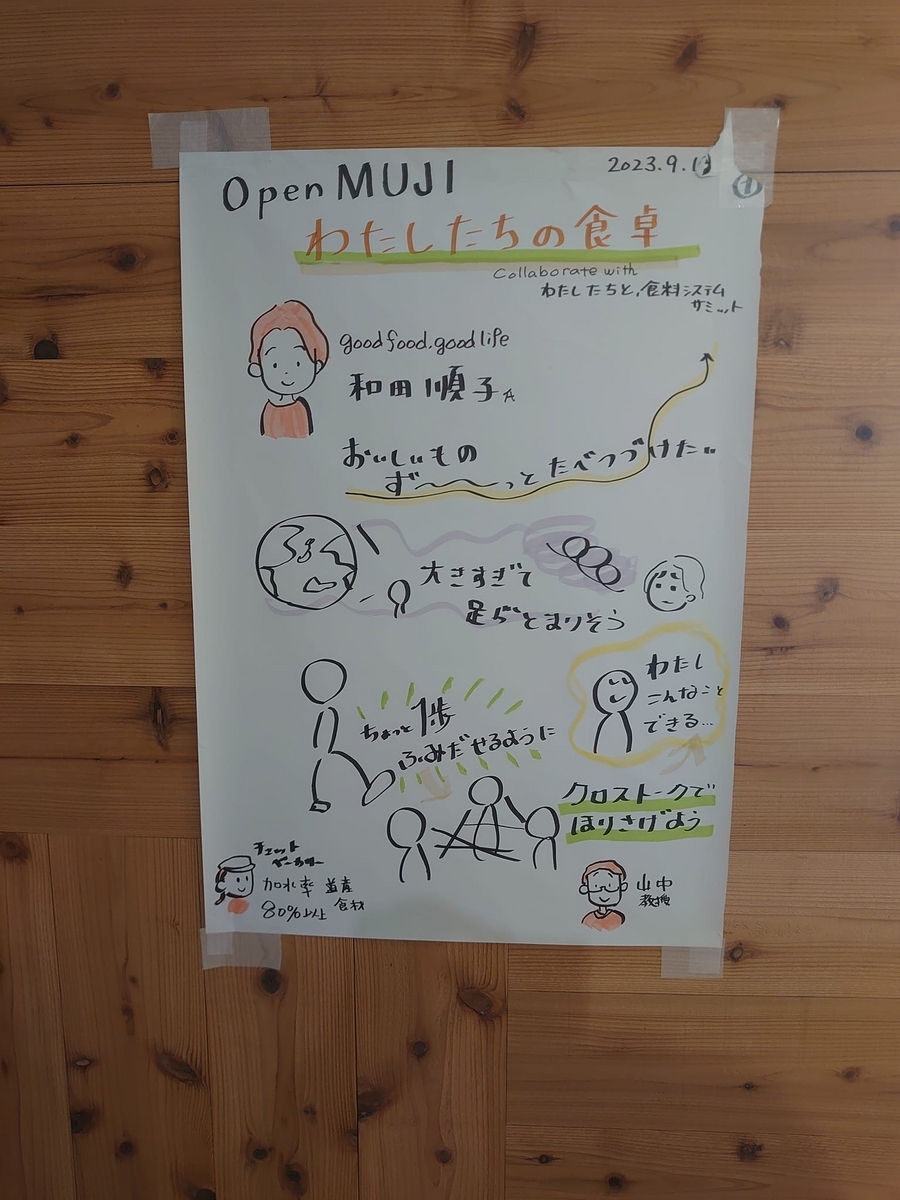 Open MUJI
2023.9.13
①
わたしたちの食卓
Collaborate with
わたしたちと、食料システム
サミット
good food. good life
和田 順子
おいしいもの
ず〜〜っと たべつづけたい
大きすぎて
足がとまりそう
わたし
こんなこと
できる…
ちょっと 1歩
ふみだせるように
クロストークで
ほりさげよう
チェット
ベーカリー
加水率 道産
80%以上 食材
山中
教授